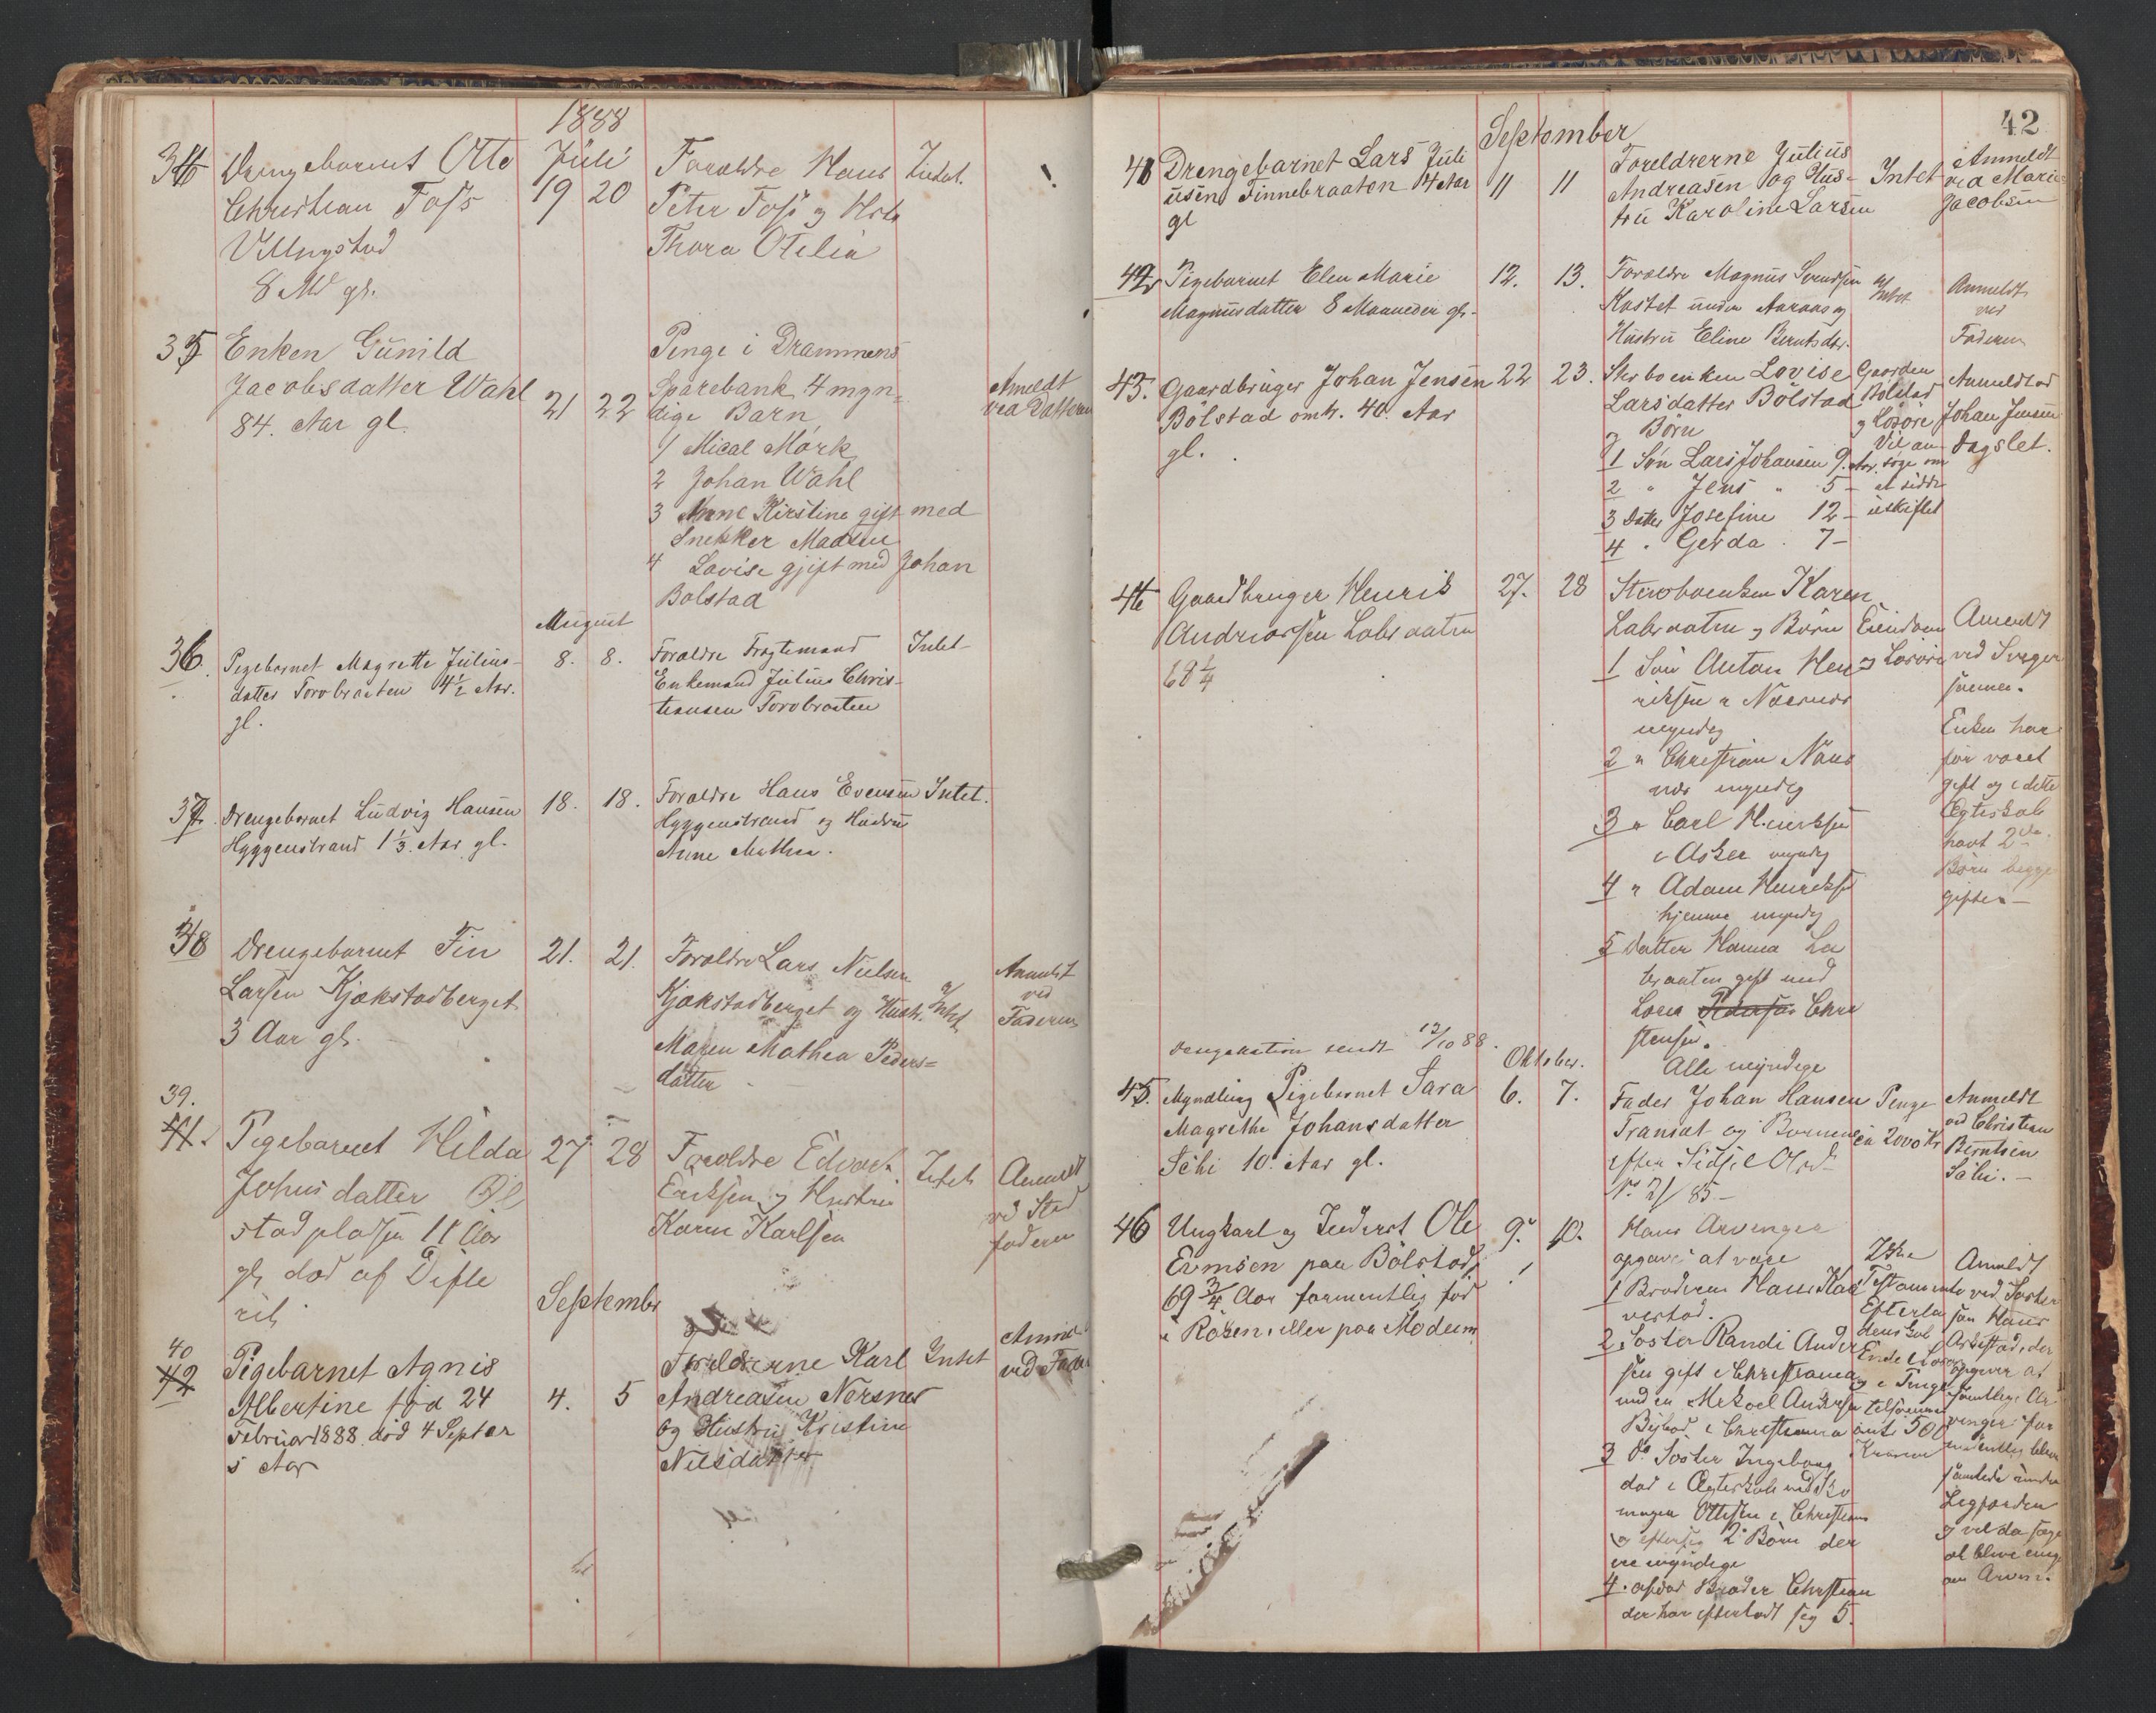 1888
34 Drengebarnet Otto Juli Forældre Hans Intet.
Christian Foss 19 20 Peter Foss og Hstr
Villingstad Thora Otelia
8 Md gl.
35 Enken Gunild Penge i Drammens
Jacobsdatter Wahl 21 22 Sparebank 4 myn= Anmeldt
84. Aar gl. dige Barn ved Datteren
1 Mical Mørk
2 Johan Wahl
3 Anne Kirstine gift med
Snekker Madsen
4 Lovise gjift med Johan
Bølstad
August
36. Pigebarnet Magrette Julius- 8. 8. Forældre Fragtemand Intet
datter Torvbraaten 4½ Aar. Enkemand Julius Chris-
gl. tiansen Torvbraaten
37. Drengebarnet Ludvig Hansen 18. 18. Forældre Hans Evensen Intet.
Hyggenstrand 1⅓ Aar gl. Hyggenstrand og Hustru
Anne Mathea.
38 Drengebarnet Fin 21. 21. Forældre Lars Nielsen Anmeldt
Larsen Kjækstadberget Kjækstadberget og Hustr. Intet ved
3 Aar gl. Maren Mathea Peders= Faderen
datter
39.
41. Pigebarnet Hilda 27 28 Forældre Edvart Intet Anmeldt
Johnsdatter Øl Eriksen og Hustru ved Sted
stadpladsen 11 Aar Karen Karlsen faderen
gl. død af Difte
rit
September
40
42 Pigebarnet Agnis Forældrerne Karl Intet Anmeldt
Albertine fød 24 4. 5 Andreasen Nersnes ved Fader
Februar 1888 død 4 Septbr og Hustru Kristine
5 Aar Nilsdatter
42
September
41 Drengebarnet Lars Juli 11 11 Foreldrerne Julius Intet Anmeldt
usen Finnebraaten 4 Aar Andreasen og Hus- ved Marie
gl tru Karoline Larsen Jacobsen
42 Pigebarnet Elen Marie 12. 13. Forældre Magnus Svendsen Intet Anmeldt
Magnusdatter 8 Maaneder gl. Kastet under Aaraas og ved
Hustru Eline Berntsdtr. Faderen
43. Gaardbruger Johan Jensen 22 23. Stervboenken Lovise Gaarden Anmeldt ved
Bølstad omtr. 40 Aar Larsdatter Bølstad Bølstad Johan Jensen
gl. Børn og Løsøre Dagslet.
1 Søn Lars Johansen 9. Aar. Vil an-
2 " Jens " 5 - søge om
3 Datter Josefine 12 - at sidde
4 " Gerda 7 - uskiftet
44 Gaardbruger Henrik 27. 28 Stervboenken Karen
Andreassen Labraaten Labraaten og Børn Eiendom Anmeldt
68¼ 1 Søn Anton Hen og Løsøre ved Sviger
riksen Nærsnes sønnen.
myndig Enken har
2 " Christian Nærs før været
nes myndig gift og i dette
3 " Carl Henriksen Ægteskab
i Asker myndig havt 2de
4 " Adam Henriksen Børn begge
hjemme myndig gifte.
5 Datter Hanna La
braaten gift med
Lars Chri
stensen.
sendt 12/10 88. Alle myndige
Oktober.
45. Myndling Pigebarnet Sara 6. 7. Fader Johan Hansen Penge Anmeldt
Magrethe Johansdatter Transet og Barnet ca 2000 Kr ved Christian
Søhi 10 Aar gl. efter Sidsel Berntsen
No 21/85 Søhi.
46 Ungkarl og Inderst Ole 9. 10. Hans Arvinger
Evensen paa Bølstad opgaves at være Anmeldt
69¾ Aar formentlig fød 1 Broderen Hans Testamente ved Søster
i Røken eller paa Modum verstad. Efterla søn Hans
2 Søster Randi Ander
sen gift i Christiania og i Penge opgiver at
med en Mekael Andersen samtlige Ar
i Christiania ant. 500 vinger
3 do Søster Ingeborg Kroner
død i Ægteskab med
Ottesen i Christiania
og efterlod 2 Børn der og vil da søge
ere myndige at blive enig
4. afdød Broder Christian om Arven.
der har efterladt seg 5.